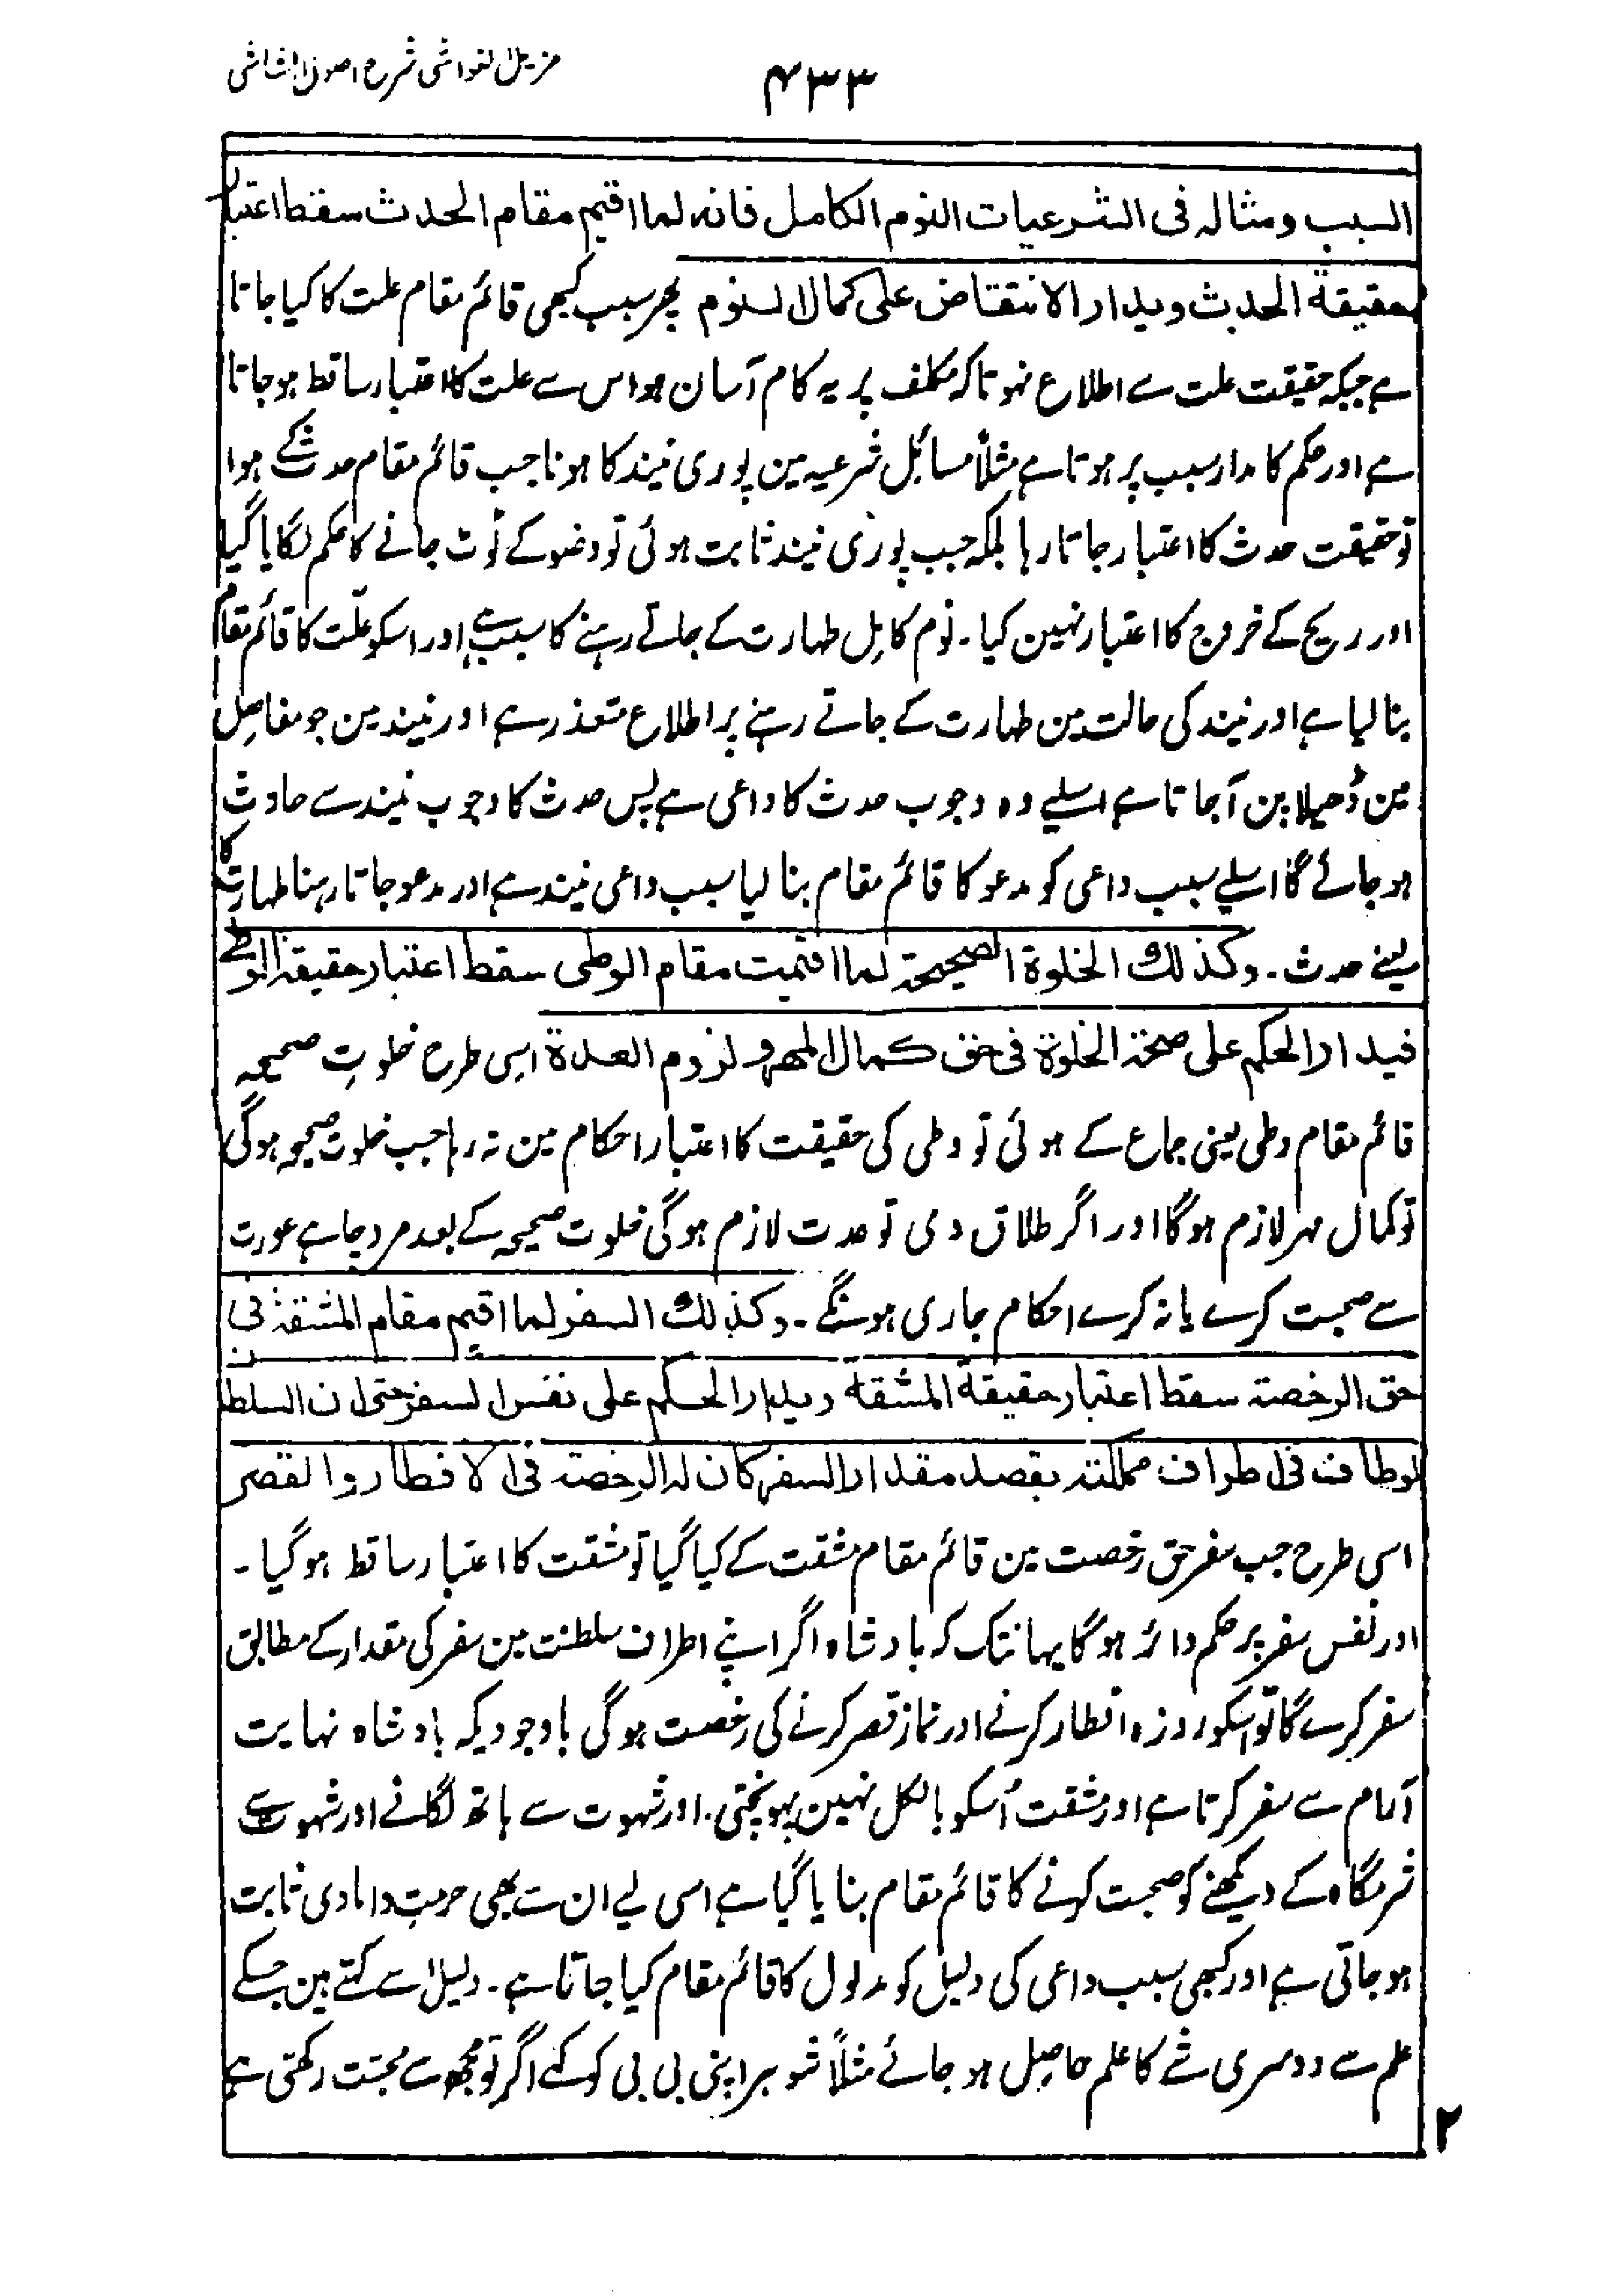 ۴۳۳
مزیل الغواشی شرح اصول الشاشی
السبب ومثاله فی الشرعیات النوم الکامل فانه لما اقیم مقام الحدث سقط اعتبار
حقیقة الحدث ویدار الانتقاض علی کمال النوم پھر سبب کبھی قائم مقام علت کا کیا جاتا
ہے جبکہ حقیقت علت سے اطلاع نہو تاکہ مکلف پر یہ کام آسان ہو اس سے علت کا اعتبار ساقط ہو جاتا
ہے اور حکم کا مدار سبب پر ہوتا ہے مثلاً مسائل شرعیہ مین پوری نیند کا ہونا جب قائم مقام حدث کے ہوا
تو حقیقت حدث کا اعتبار جاتا رہا بلکہ جب پوری نیند ثابت ہوئی تو وضو کے ٹوٹ جانے کا حکم لگایا گیا
اور ریح کے خروج کا اعتبار نہین کیا۔ نوم کامل طہارت کے جاتے رہنے کا سبب ہے اور اسکو علّت کا قائم مقام
بنا لیا ہے اور نیند کی حالت مین طہارت کے جاتے رہنے پر اطلاع متعذر ہے اور نیند مین جو مفاصل
مین ڈھیلا پن آجاتا ہے اسلیے وہ وجوب حدث کا داعی ہے پس حدث کا وجوب نیند سے حادث
ہو جائے گا اسلیے سبب داعی کو مدعو کا قائم مقام بنا لیا سبب داعی نیند ہے اور مدعو جاتا رہنا طہارت کا
یعنے حدث۔ وکذلك الخلوة الصحیحة لما اقیمت مقام الوطی سقط اعتبار حقیقة الوطے
فیدار الحکم علی صحة الخلوة فی حق کمال المهر ولزوم العدة اسی طرح خلوتِ صحیحہ
قائم مقام وطی یعنی جماع کے ہوئی تو وطی کی حقیقت کا اعتبار احکام مین نہ رہا جب خلوت صحیحہ ہوگی
تو کمال مہر لازم ہوگا اور اگر طلاق دی تو عدت لازم ہوگی خلوت صحیحہ کے بعد مرد چاہے عورت
سے صحبت کرے یا نہ کرے احکام جاری ہونگے۔ وکذلك السفر لما اقیم مقام المشقة فی
حق الرخصة سقط اعتبار حقیقة المشقة ویدار الحکم علی نفس السفر حتی ان السلطان
لوطاف فی اطراف مملکته یقصد مقدار السفر کان له الرخصة فی الافطار والقصر
اسی طرح جب سفر حق رخصت مین قائم مقام مشقت کے کیا گیا تو مشقت کا اعتبار ساقط ہو گیا۔
اور نفس سفر پر حکم دائر ہوگا یہانتک کہ بادشاہ اگر اپنے اطراف سلطنت مین سفر کی مقدار کے مطابق
سفر کرے گا تو اسکو روزہ افطار کرنے اور نماز قصر کرنے کی رخصت ہوگی باوجودیکہ بادشاہ نہایت
آرام سے سفر کرتا ہے اور مشقت اُسکو بالکل نہین پہونچتی۔ اور شہوت سے ہاتھ لگانے اور شہوت سے
شرمگاہ کے دیکھنے کو صحبت کرنے کا قائم مقام بنایا گیا ہے اسی لیے ان سے بھی حرمتِ دامادی ثابت
ہو جاتی ہے اور کبھی سبب داعی کی دلیل کو مدلول کا قائم مقام کیا جاتا ہے۔ دلیل اسے کہتے ہین جسکے
علم سے دوسری شے کا علم حاصل ہو جائے مثلاً شوہر اپنی بی بی کو کہے اگر تو مجھ سے محبّت رکھتی ہے
۲